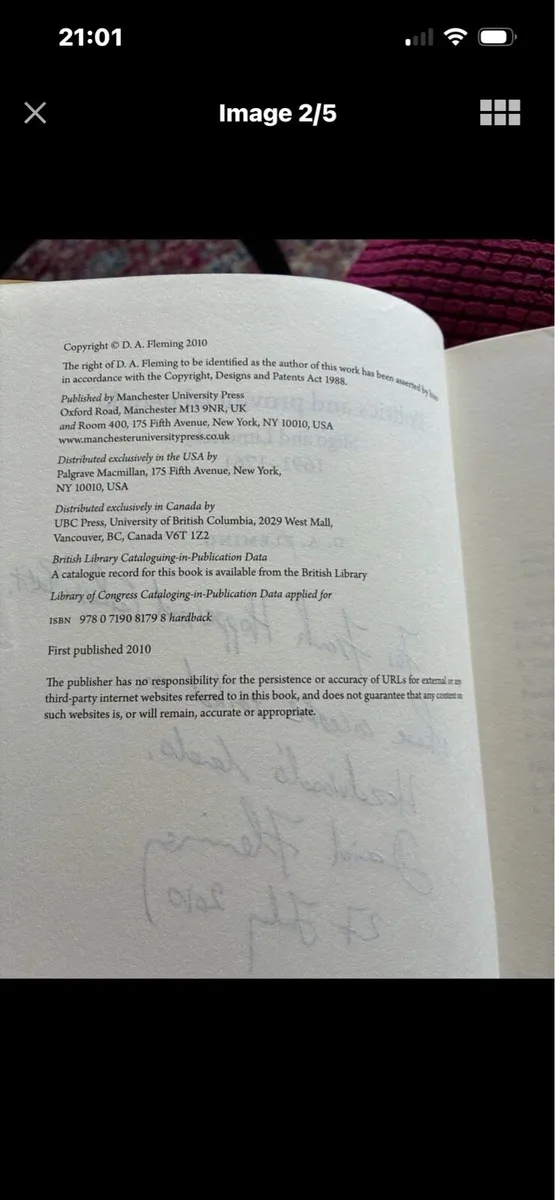 21:01
Image 2/5
Copyright © D. A. Fleming 2010
The right of D. A. Fleming to be identified as the author of this work has been asserted by him
in accordance with the Copyright, Designs and Patents Act 1988.
Published by Manchester University Press
Oxford Road, Manchester M13 9NR, UK
and Room 400, 175 Fifth Avenue, New York, NY 10010, USA
www.manchesteruniversitypress.co.uk
Distributed exclusively in the USA by
Palgrave Macmillan, 175 Fifth Avenue, New York,
NY 10010, USA
Distributed exclusively in Canada by
UBC Press, University of British Columbia, 2029 West Mall,
Vancouver, BC, Canada V6T 1Z2
British Library Cataloguing-in-Publication Data
A catalogue record for this book is available from the British Library
Library of Congress Cataloging-in-Publication Data applied for
ISBN 978 0 7190 8179 8 hardback
First published 2010
The publisher has no responsibility for the persistence or accuracy of URLs for external or any
third-party internet websites referred to in this book, and does not guarantee that any content on
such websites is, or will remain, accurate or appropriate.
David Fleming
27 July 2010